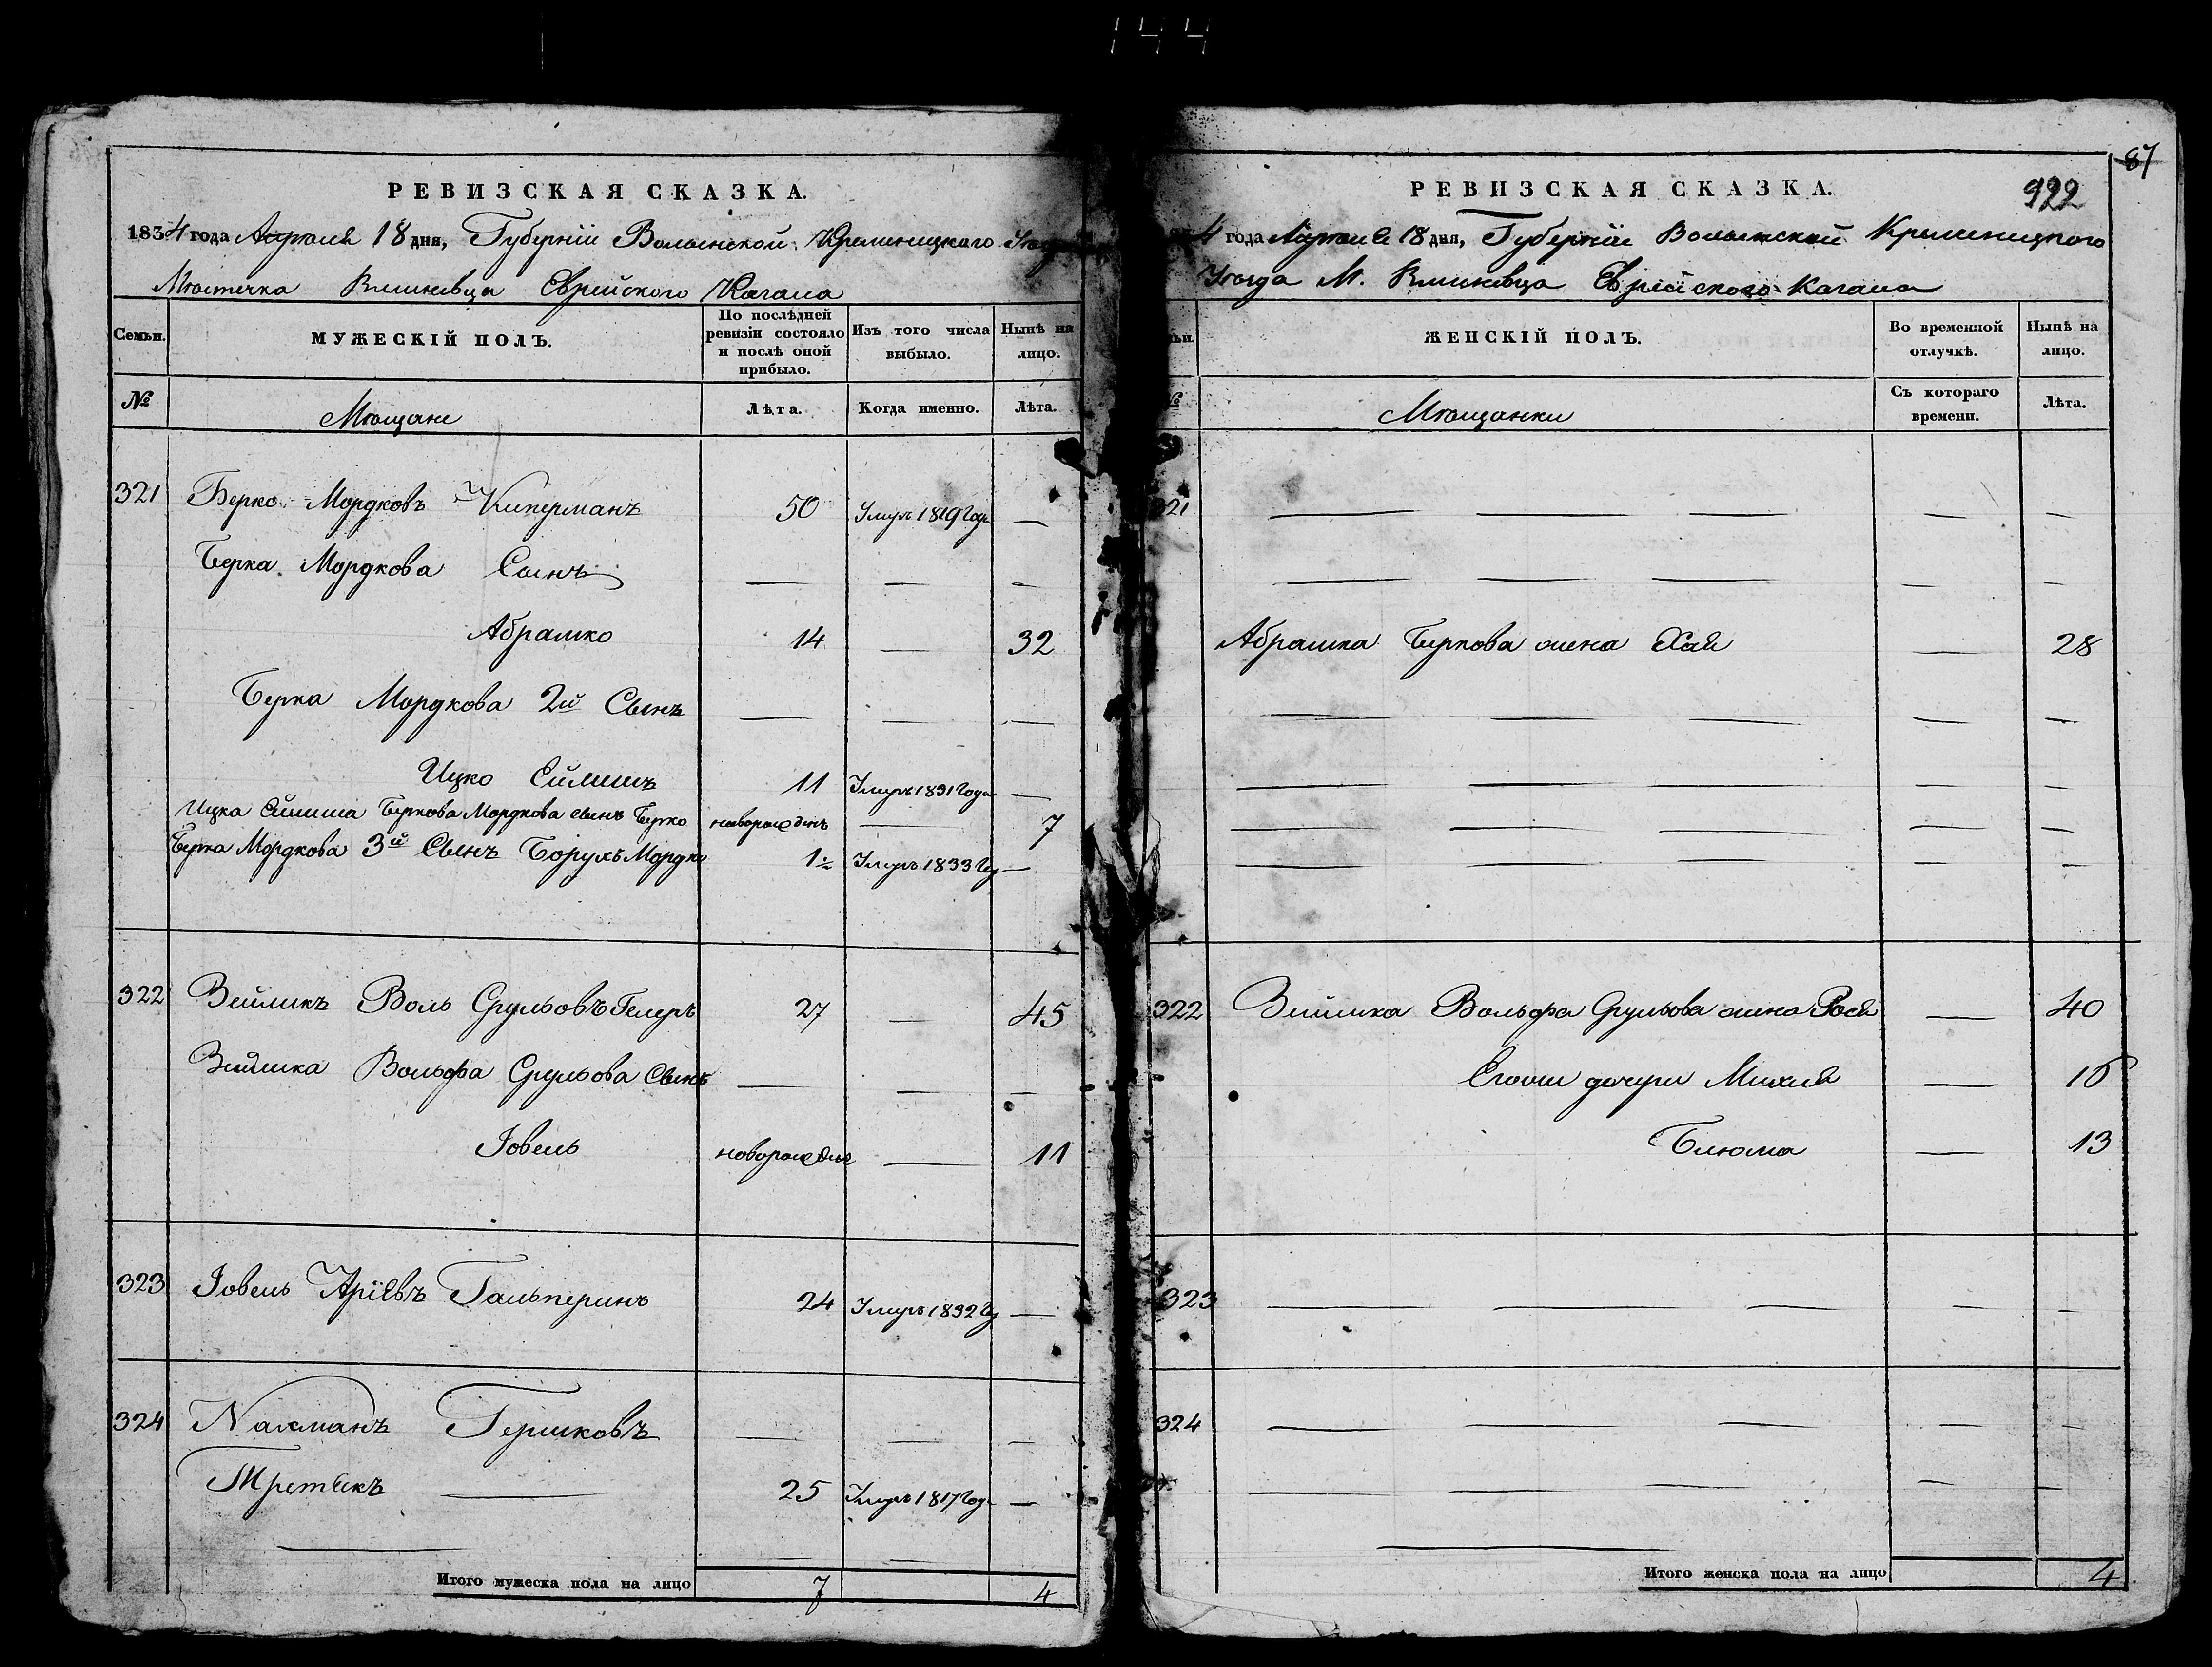 144
РЕВИЗСКАЯ СКАЗКА.
1834 года Апреля 18 дня, Губерніи Волынской Кременицкаго
Мѣстечка Еврейского Кагала
Семьи.
МУЖЕСКІЙ ПОЛЪ.
По послѣдней ревизіи состояло и послѣ оной прибыло.
Изъ того числа выбыло.
Нынѣ на лицо.
№
Мѣщане
Лѣта.
Когда именно.
Лѣта.
321 Берко Мордковъ Киперманъ 50 Умеръ 1819 Года —
Берка Мордкова Сынъ — — —
Абрамко 14 — 32
Берка Мордкова 2й Сынъ — — —
Ицко 11 Умеръ 1831 Года —
Ицка Беркова Мордкова сынъ Берко новорожденъ — 7
Берка Мордкова 3й Сынъ Борухъ Мордко 1½ Умеръ 1833 —
322 Зейликъ Воль Срульовъ Гелеръ 27 — 45
Зейлика Вольфа Срульова Сынъ — — —
Іовель — 11
323 Іовель Аріевъ Гальперинъ 24 Умеръ 1832 —
324 Нахманъ Гершковъ — — —
Третякъ — 25 Умеръ 1817 Года —
—
Итого мужеска пола на лицо 7 4
87
922
РЕВИЗСКАЯ СКАЗКА.
4 года Апреля 18 дня, Губерніи Волынской Кременицкого
Уѣзда М. Еврейского Кагала
ЖЕНСКІЙ ПОЛЪ.
Во временной отлучкѣ.
Нынѣ на лицо.
Мѣщанки
Съ котораго времени.
Лѣта.
321 — — — — —
— — — — —
Абрамка Беркова жена Хая — 28
— — — — —
— — — — —
— — — — —
— — — — —
322 Зейлика Вольфа Срульова жена Рося — 40
Егоже дочери Михля — 16
Блюма — 13
323 — — — — —
324 — — — — —
— — — — —
—
Итого женска пола на лицо 4